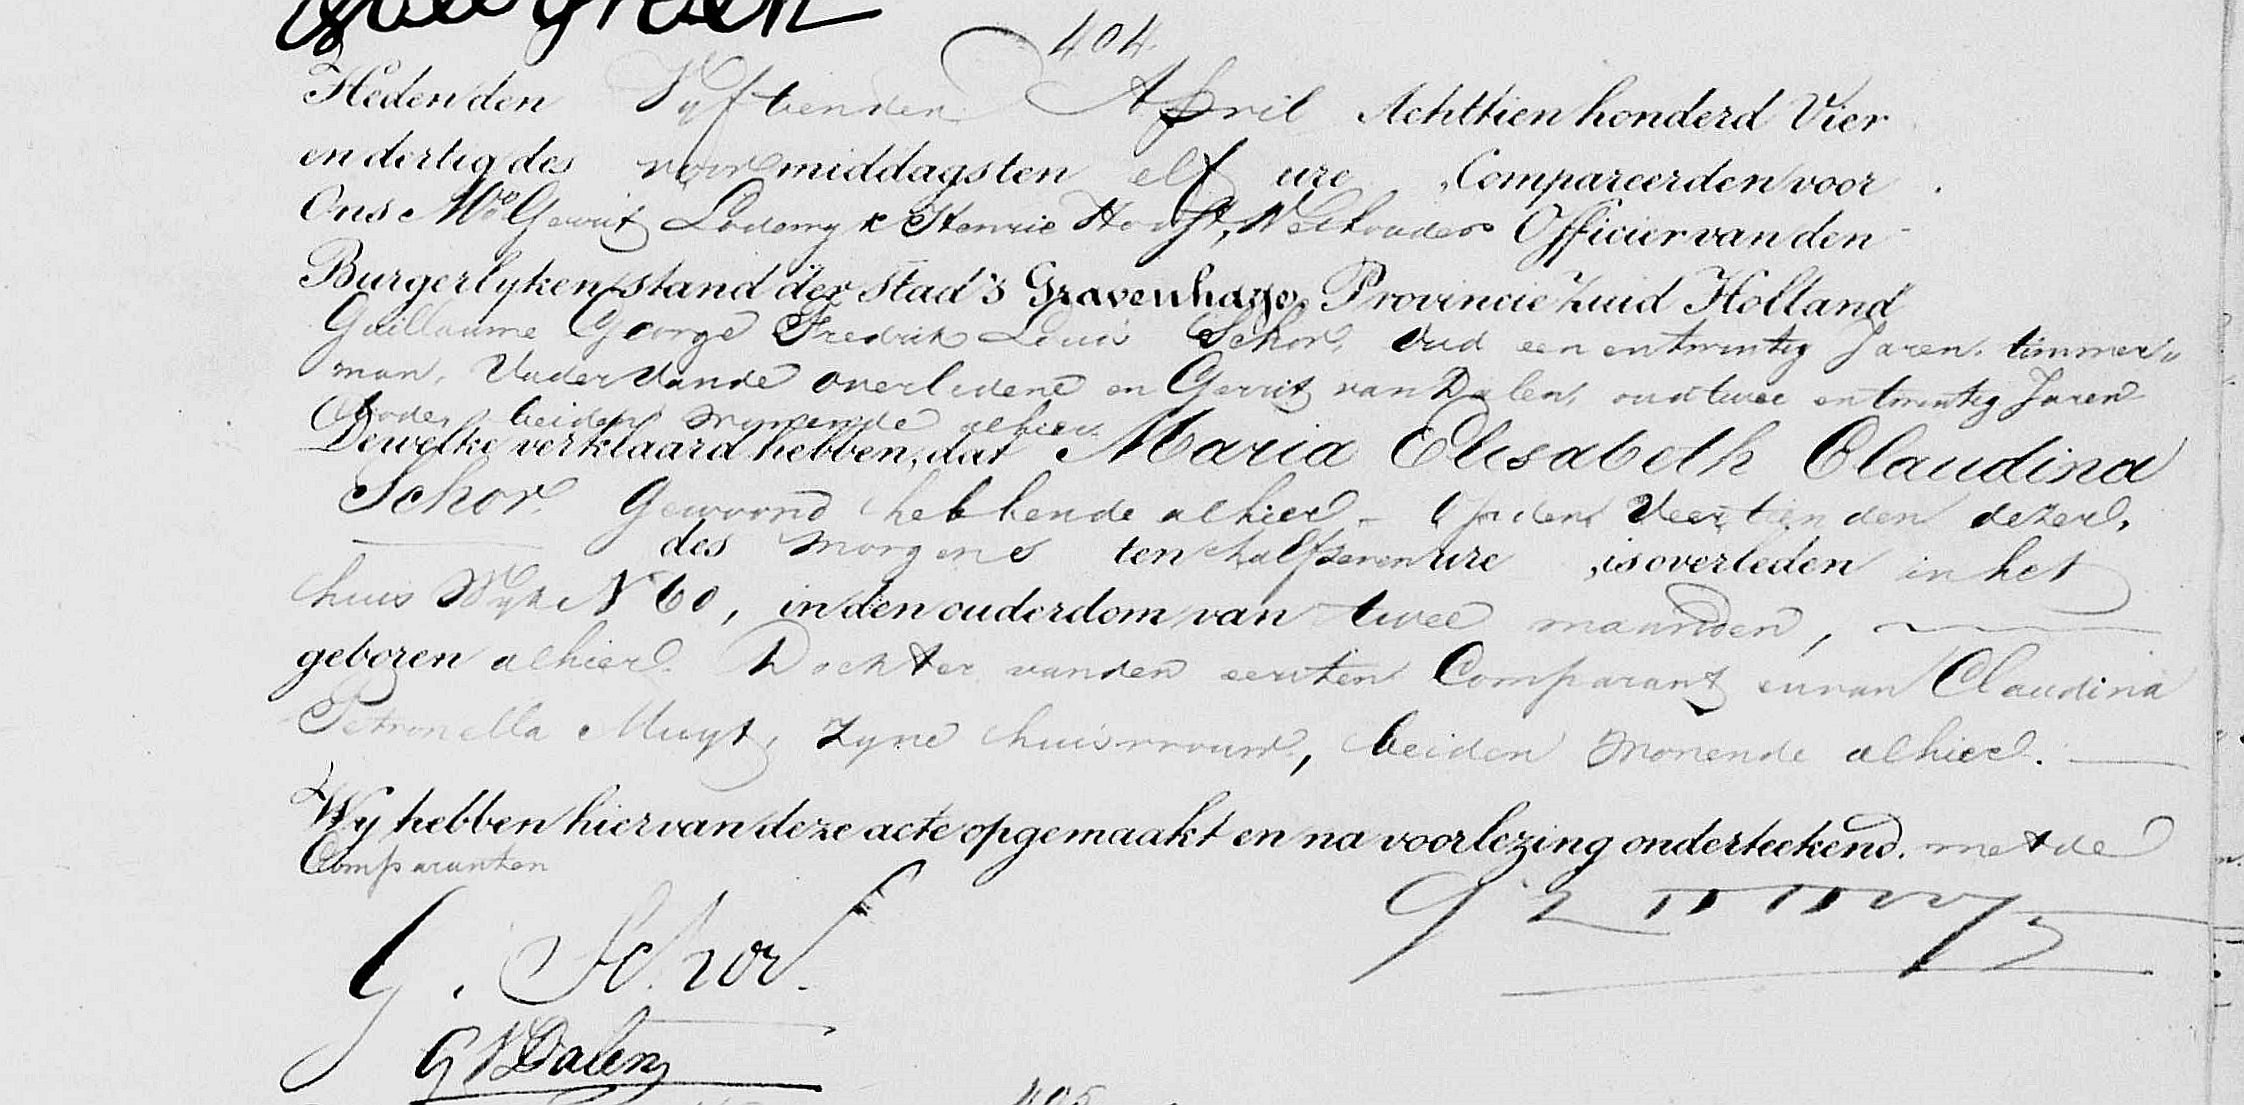 404.
Heden den Vyftienden April Achttien honderd Vier
en dertig des voormiddags ten elf ure, Compareerden voor
Ons Mr. Gerrit Lodewyk Henrie Hooft, Wethouder Officier van den
Burgerlyken stand der Stad 's Gravenhage, Provincie Zuid Holland
Guillaume George Fredrik Louis Schor, Oud een en twintig Jaren, timmer„
man, Vader Vande overledene en Gerrit van Dalen, oud twee en twintig Jaren
beiden wonende alhier
Dewelke verklaard hebben, dat Maria Elisabeth Claudina
Schor Gewoond hebbende alhier – Op den Veertienden dezer,
des morgens ten half zeven ure, is overleden in het
huis Wyk N 60, in den ouderdom van twee maanden,
geboren alhier. Dochter van den eersten Comparant en van Claudina
Petronella Muyt, zyne huisvrouw, beiden wonende alhier.
Wy hebben hiervan deze acte opgemaakt en na voorlezing onderteekend. met de
Comparanten
G. Schor.
G V Dalen
405